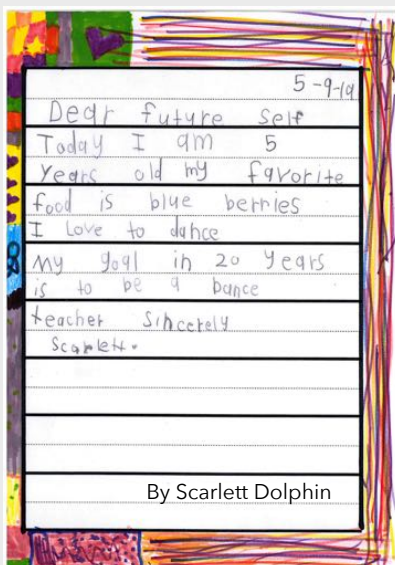 5-9-19
Dear future self
Today I am 5
years old my favorite
food is blue berries
I Love to dance
My goal in 20 years
is to be a bance
teacher Sincerely
Scarlett.
By Scarlett Dolphin